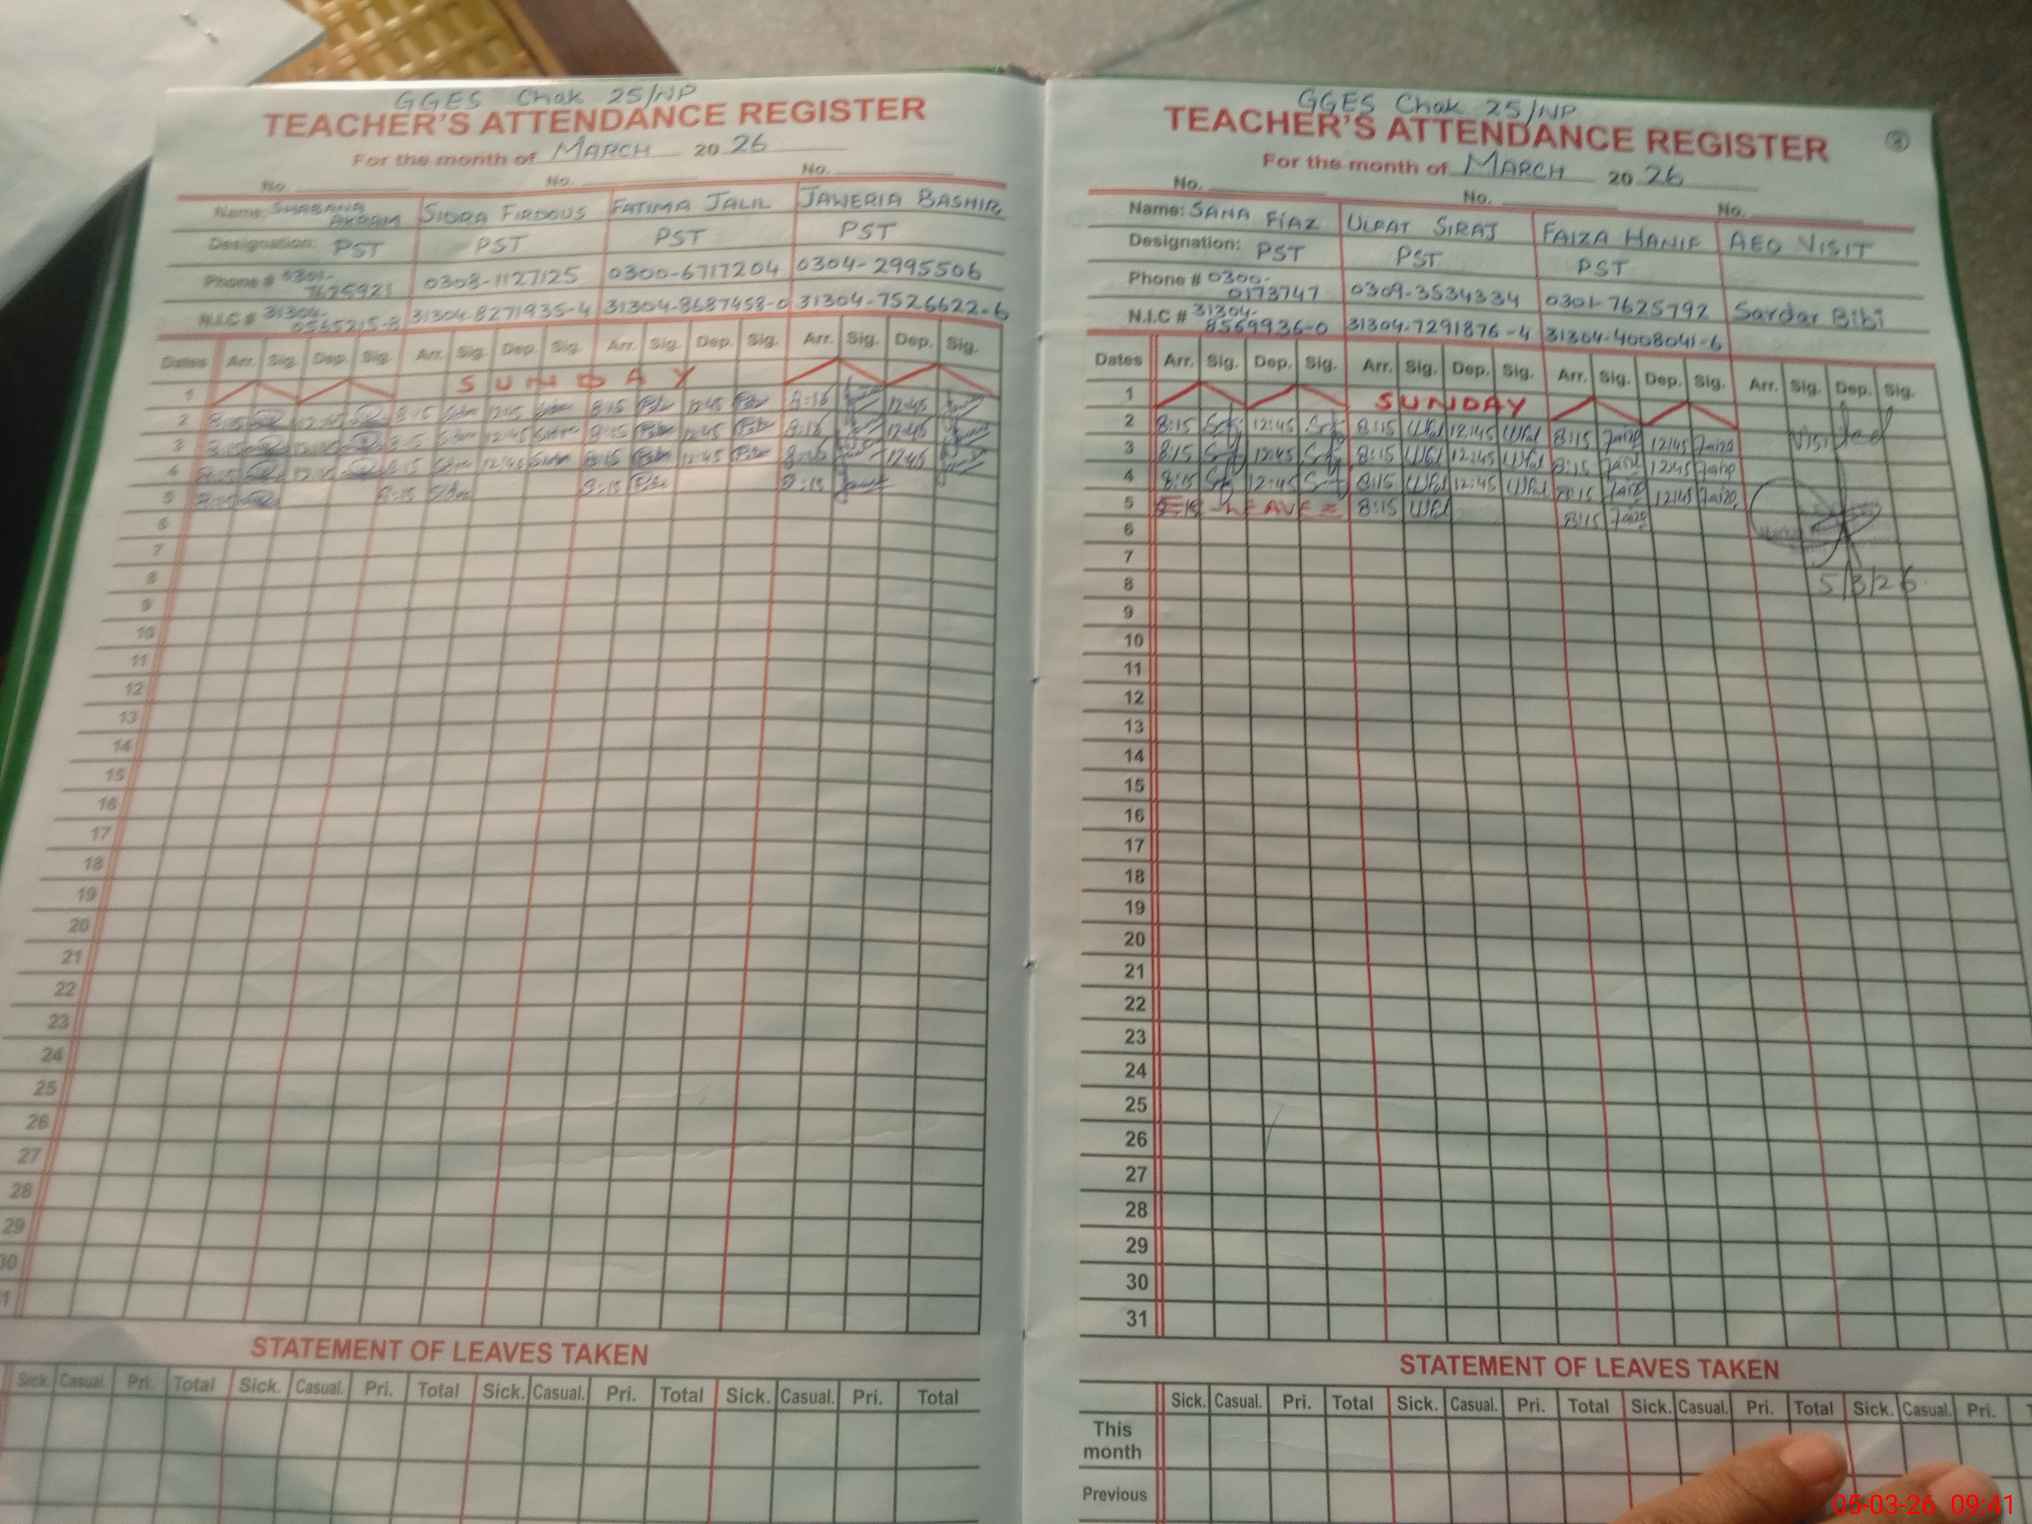 GGES Chak 25/NP
TEACHER'S ATTENDANCE REGISTER
For the month of MARCH 2026
No. No. No.
Name: SHABANA AKRAM SIDRA FIRDOUS FATIMA JALIL JAWERIA BASHIR
Designation: PST PST PST PST
Phone # 0301-7625921 0303-1127125 0300-6717204 0304-2995506
N.I.C # 31304-0565215-8 31304-8271935-4 31304-8687458-0 31304-7526622-6
Dates Arr. Sig. Dep. Sig. Arr. Sig. Dep. Sig. Arr. Sig. Dep. Sig. Arr. Sig. Dep. Sig.
1 SUNDAY
2 8:15 12:45 8:15 12:45 8:15 12:45 8:16 12:45
3 8:15 12:45 8:15 12:45 8:15 12:45 8:16 12:45
4 8:15 12:45 8:15 12:45 8:15 12:45 8:16 12:45
5 8:15 8:15 8:15 8:15
6
7
8
9
10
11
12
13
14
15
16
17
18
19
20
21
22
23
24
25
26
27
28
29
30
1
STATEMENT OF LEAVES TAKEN
Sick. Casual. Pri. Total Sick. Casual. Pri. Total Sick. Casual. Pri. Total Sick. Casual. Pri. Total
GGES Chak 25/NP
TEACHER'S ATTENDANCE REGISTER
For the month of MARCH 2026
No. No. No.
Name: SANA FIAZ ULFAT SIRAJ FAIZA HANIF AEO VISIT
Designation: PST PST PST
Phone # 0300-0173747 0309-3534334 0301-7625792 Sardar Bibi
N.I.C # 31304-8569936-0 31304-7291876-4 31304-4008041-6
Dates Arr. Sig. Dep. Sig. Arr. Sig. Dep. Sig. Arr. Sig. Dep. Sig. Arr. Sig. Dep. Sig.
1 SUNDAY
2 8:15 12:45 8:15 Ulfat 12:45 Ulfat 8:15 Faiza 12:45 Faiza Visited
3 8:15 12:45 8:15 Ulfat 12:45 Ulfat 8:15 Faiza 12:45 Faiza
4 8:15 12:45 8:15 Ulfat 12:45 Ulfat 8:15 Faiza 12:45 Faiza
5 LEAVE 8:15 Ulfat 8:15 Faiza
6
7
8 5/3/26
9
10
11
12
13
14
15
16
17
18
19
20
21
22
23
24
25
26
27
28
29
30
31
STATEMENT OF LEAVES TAKEN
Sick. Casual. Pri. Total Sick. Casual. Pri. Total Sick. Casual. Pri. Total Sick. Casual. Pri.
This month
Previous
05-03-26 09:41